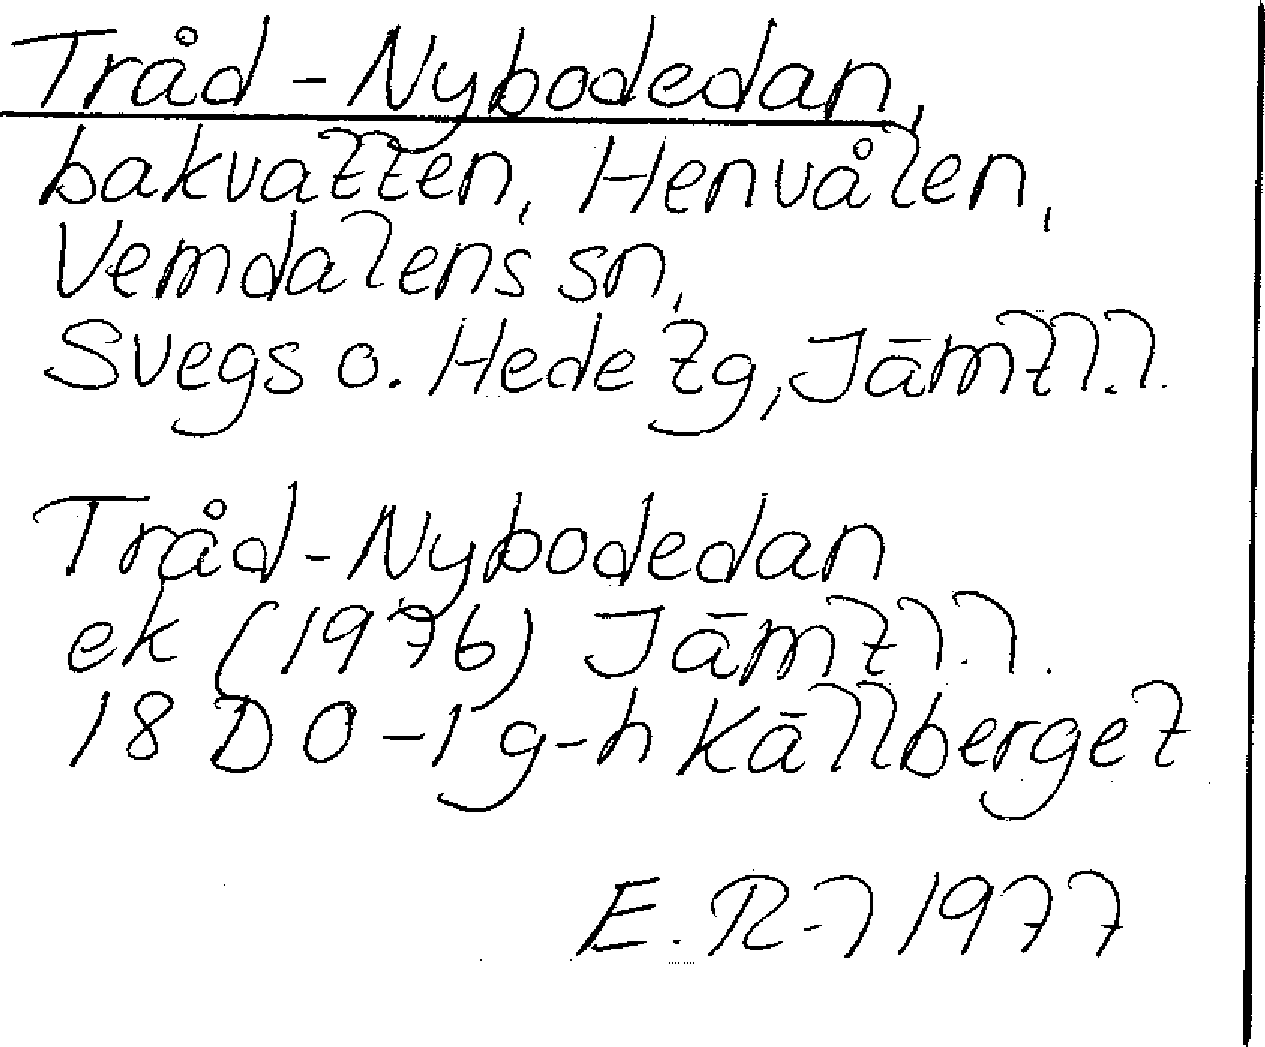 Tråd-Nybodedan,
bakvatten, Henvålen,
Vemdalens sn,
Svegs o. Hede tg, Jämtl.l.
Tråd-Nybodedan
ek (1976) Jämtl.l.
18 D 0-1 g-h Källberget
E. R-l 1977